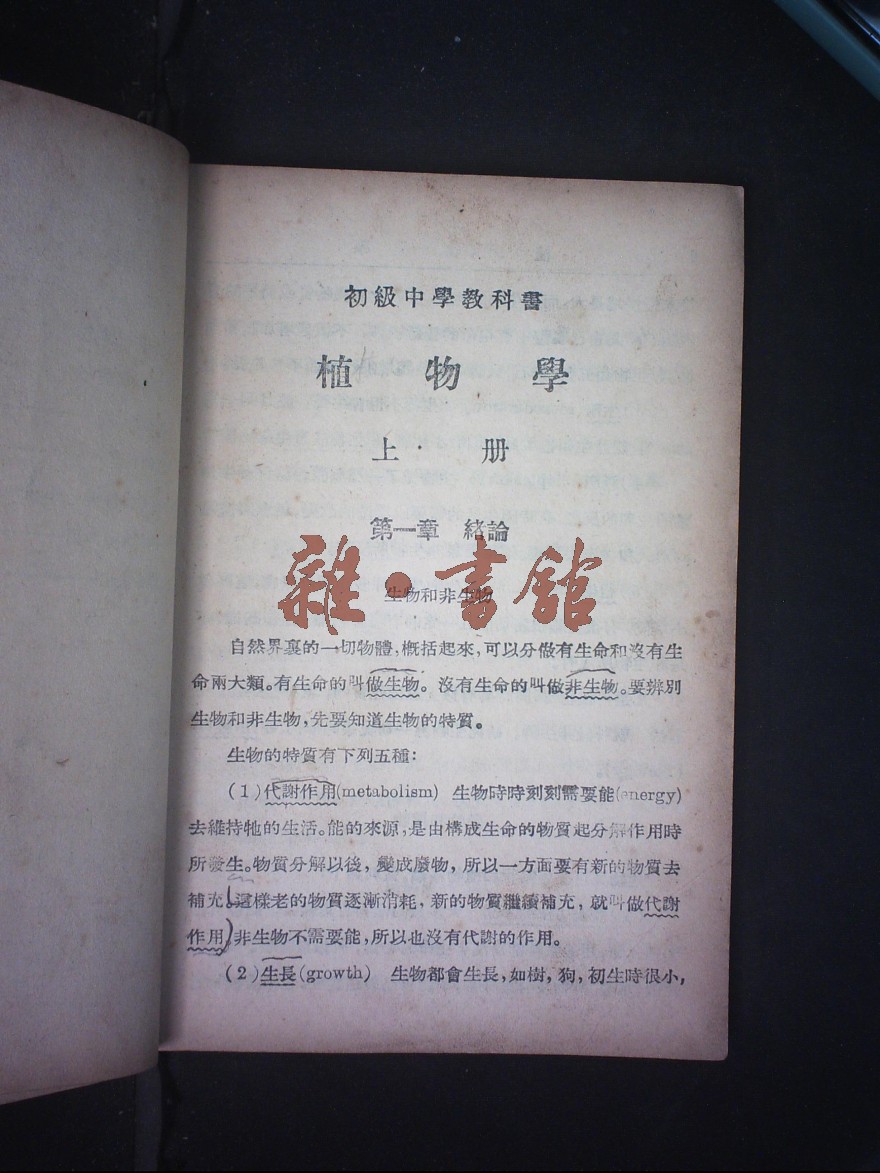 初級中學教科書
植物學
上册
第一章 緒論
雜·書館
生物和非生物
自然界裏的一切物體,概括起來,可以分做有生命和沒有生
命兩大類。有生命的叫做生物。沒有生命的叫做非生物。要辨別
生物和非生物,先要知道生物的特質。
生物的特質有下列五種:
(1)代謝作用(metabolism) 生物時時刻刻需要能(energy)
去維持牠的生活。能的來源,是由構成生命的物質起分解作用時
所發生。物質分解以後,變成廢物,所以一方面要有新的物質去
補充。這樣老的物質逐漸消耗,新的物質繼續補充,就叫做代謝
作用。非生物不需要能,所以也沒有代謝的作用。
(2)生長(growth) 生物都會生長,如樹,狗,初生時很小,